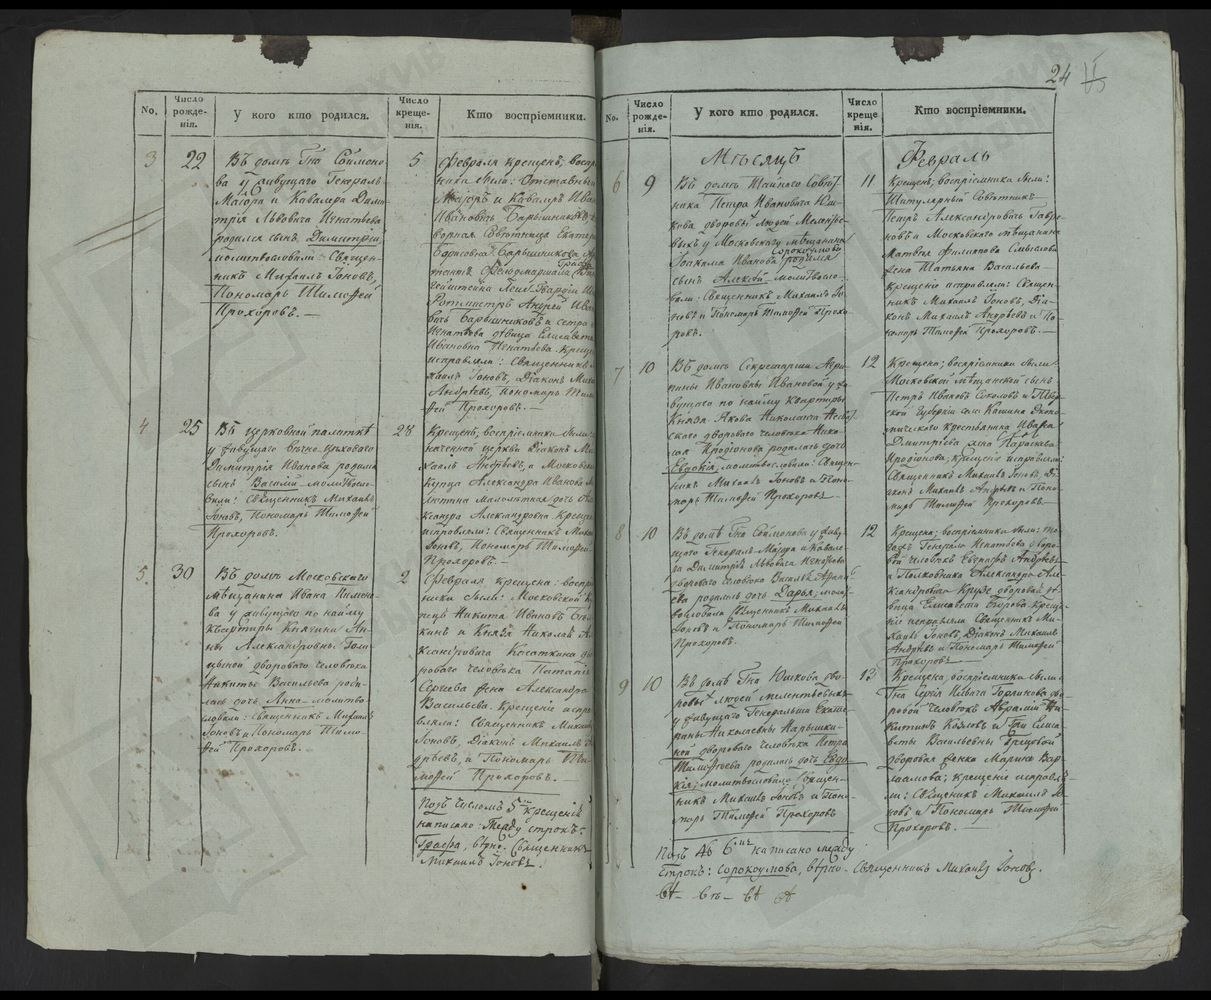 No.
Число рожде-нія.
У кого кто родился.
Число креще-нія.
Кто воспріемники.
3
22
Въ домѣ Гна Соймоно
ва у живущаго Генералъ
Маіора и Кавалера Дими
трія Львовича Игнатьева
родился сынъ Димитрій,
молитвословили Священ-
никъ Михаилъ Іоновъ,
Пономарь Тимоѳей
Прохоровъ. —
5
Февраля крещенъ, воспр
ника были: Отставный
Маіоръ и Кавалеръ Иван
Ивановичъ Барышников
ворная Совѣтница Екатер
Борисовна Барышникова
Графа
Лейбъ Гвардіи
Ротмистръ Андрей Ива
вичъ Барышниковъ и сестра
Игнатьева дѣвица Елисавета
Ивановна Игнатьева. Креще
исправляли: Священникъ
хаилъ Іоновъ, Діаконъ Миха
Андреевъ, Пономарь Тим
ѳей Прохоровъ. —
4
25
Въ церковной палаткѣ
у живущаго вѣчно цѣховаго
Димитрія Иванова родился
сынъ Василій — молитвосло
вили: Священникъ Михаилъ
Іоновъ, Пономарь Тимоѳей
Прохоровъ.
28
Крещенъ, воспріемники были
наченной церкви Діаконъ Ми
хаилъ Андреевъ, и Московска
купца Александра Иванова
малолѣтная дочь Але
ксандра Александровна. Крещен
исправляли: Священникъ Михаи
Іоновъ, Пономарь Тимоѳей
Прохоровъ. —
5.
30
Въ домѣ Московскаго
мѣщанина Ивана Пимено
ва у живущаго по найму
квартиры Княгини Ан-
ны Александровны Гали
цыной двороваго человѣка
Никиты Васильева роди-
лась дочь Анна — молитво-
словили: Священникъ Михаилъ
Іоновъ и Пономарь Тимо-
ѳей Прохоровъ. —
2
Февраля крещена: воспр
ники были: Московской К
пецъ Никита Ивановъ
кинъ и Князя Николая А
ксандровича Касаткина дво
роваго человѣка Потапа
Сергѣева жена Александра
Васильева. Крещеніе испра
вляли: Священникъ Михаилъ
Іоновъ, Діаконъ Михаилъ
дреевъ, и Пономарь Ти
моѳей Прохоровъ. —
Подъ числомъ 5мъ крещенія
написано: между строкъ:
Графа, вѣрно. Священникъ
Михаилъ Іоновъ.
24
No.
Число рожде-нія.
У кого кто родился.
Число креще нія.
Кто воспріемники.
Мѣсяцъ
Февраль
6
9
Въ домѣ Тайнаго Совѣт-
ника Петра Ивановича Юш-
кова дворовыхъ людей Мелентье
выхъ у Московскаго мѣщанина
Сорокоумова
Іоакима Иванова родился
сынъ Алексѣй — молитвосло-
вили: Священникъ Михаилъ Іо-
новъ и Пономарь Тимоѳей Прохо-
ровъ.
11
Крещенъ; воспріемники были:
Титулярный Совѣтникъ
Петръ Александровичъ Гавре-
новъ и Московскаго мѣщанина
Матвея Филипова Смыслова
жена Татьяна Васильева —
Крещеніе исправляли: Священ-
никъ Михаилъ Іоновъ, Діа-
конъ Михаилъ Андреевъ и По-
номарь Тимоѳей Прохоровъ. —
7
10
Въ домѣ Секретарши Агри-
пины Ивановны Ивановой у жи
вущаго по найму квартиры
Князя Якова Николаича Несвит-
скаго двороваго человѣка Нико-
лая Продіонова родилась дочь
Евдокія, молитвословили: Священ-
никъ Михаилъ Іоновъ и Поно-
марь Тимоѳей Прохоровъ —
12
Крещена; воспріемники были:
Московской мѣщанской сынъ
Петръ Ивановъ Соколовъ и Твер-
ской губерніи села Кашина Эконо-
мическаго крестьянина Ивана
Дмитріева жена Парасковья
Продіонова; Крещеніе исправляли:
Священникъ Михаилъ Іоновъ, Ді-
аконъ Михаилъ Андреевъ и Поно-
марь Тимоѳей Прохоровъ —
8
10
Въ домѣ Гна Соймонова у живу-
щаго Генералъ Маіора и Кавале-
ра Димитрія Львовича Игнатьева
двороваго человѣка Василья
родилась дочь Дарья; моли-
вословили Священникъ Михаилъ
Іоновъ и Пономарь Тимоѳей
Прохоровъ.
12
Крещена; воспріемники были: то-
гожъ Генерала Игнатьева дворо-
вой человѣкъ Андреевъ
и Полковника Александра Але-
ксандровича Крузе дворовая дѣ-
вица Елисавета Егорова. Креще-
ніе исправляли Священникъ Ми-
хаилъ Іоновъ, Діаконъ Михаилъ
Андреевъ и Пономарь Тимоѳей
Прохоровъ —
9
10
Въ домѣ Гна Юшкова дво-
ровыхъ людей Мелентьевыхъ
у живущаго Генеральши Екате-
рины Николаевны Нарышки-
ной двороваго человѣка Петра
Тимоѳеева родилась дочь Евдо-
кія; молитвословили Священ-
никъ Михаилъ Іоновъ и Поно-
марь Тимоѳей Прохоровъ
13
Крещена; воспріемники были:
Гна Сергія Ильича Горлинова дво-
ровой человѣкъ Авраамій Ни-
китинъ Козловъ и Гжи Елиса-
веты Васильевны
дворовая женка Марина Вар-
лаамова; крещеніе исправля-
ли: Священникъ Михаилъ Іо-
новъ и Пономарь Тимоѳей
Прохоровъ. —
Подъ № 6мъ написано между
строкъ: Сорокоумова, вѣрно. Священникъ Михаилъ Іоновъ.